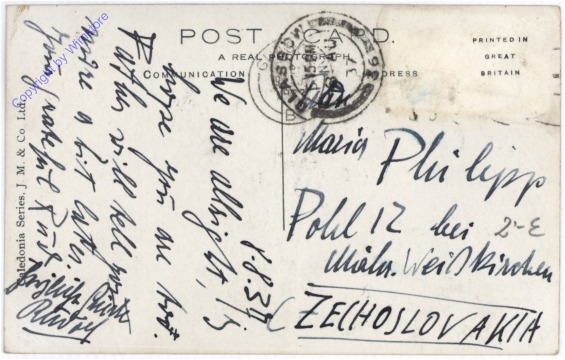 POST CARD.
A REAL PHOTOGRAPH
PRINTED IN
GREAT
BRITAIN
COMMUNICATION
ADDRESS
Caledonia Series. J. M. & Co. Ltd.
Copyright by WinMore
GLASGOW
B
8.8.37
We are allright, I
hope you are too.
Father will tell you
more a bit later
your
Herzliche Grüße
Rudolf
Maria Philipp
Pohl 12 bei
2-E
Mähr. Weißkirchen
CZECHOSLOVAKIA